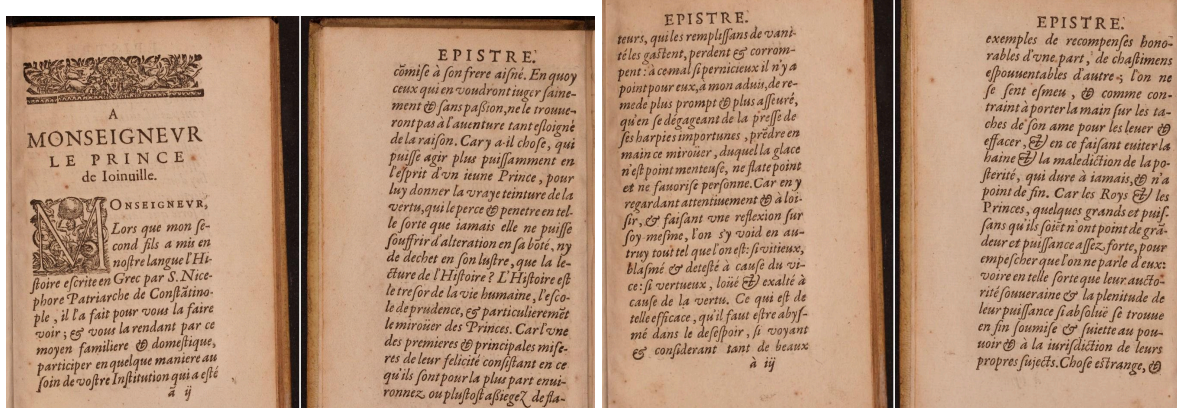 A
MONSEIGNEVR
LE PRINCE
de Ioinuille.
MONSEIGNEVR,
Lors que mon se-
cond fils a mis en
nostre langue l'Hi-
stoire escrite en Grec par S. Nice-
phore Patriarche de Constãtino-
ple, il l'a fait pour vous la faire
voir; & vous la rendant par ce
moyen familiere & domestique,
participer en quelque maniere au
soin de vostre Institution qui a esté
ã ij
EPISTRE.
cõmise à son frere aisné. En quoy
ceux qui en voudront iuger saine-
ment & sans passion, ne le trouue-
ront pas à l'auenture tant esloigné
de la raison. Car y a-il chose, qui
puisse agir plus puissamment en
l'esprit d'vn ieune Prince, pour
luy donner la vraye teinture de la
vertu, qui le perce & penetre en tel-
le sorte que iamais elle ne puisse
souffrir d'alteration en sa bõté, ny
de dechet en son lustre, que la le-
cture de l'Histoire? L'Histoire est
le tresor de la vie humaine, l'esco-
le de prudence, & particulieremẽt
le miroüer des Princes. Car l'vne
des premieres & principales mise-
res de leur felicité consistant en ce
qu'ils sont pour la plus part enui-
ronnez ou plustost assiegez de fla-
EPISTRE.
teurs, qui les remplissans de vani-
té les gastent, perdent & corrom-
pent: à ce mal si pernicieux il n'y a
point pour eux, à mon aduis, de re-
mede plus prompt & plus asseuré,
qu'en se dégageant de la presse de
ses harpies importunes, prẽdre en
main ce miroüer, duquel la glace
n'est point menteuse, ne flate point
et ne fauorise personne. Car en y
regardant attentiuement & à loi-
sir, & faisant vne reflexion sur
soy mesme, l'on s'y void en au-
truy tout tel que l'on est: si vitieux,
blasmé & detesté à cause du vi-
ce: si vertueux, loüé & exalté à
cause de la vertu. Ce qui est de
telle efficace, qu'il faut estre abys-
mé dans le desespoir, si voyant
& considerant tant de beaux
à iij
EPISTRE.
exemples de recompenses hono-
rables d'vne part, de chastimens
espouuentables d'autre, l'on ne
se sent esmeu, & comme con-
traint à porter la main sur les ta-
ches de son ame pour les leuer &
effacer, & en ce faisant euiter la
haine & la malediction de la po-
sterité, qui dure à iamais, & n'a
point de fin. Car les Roys & les
Princes, quelques grands et puis-
sans qu'ils soiẽt n'ont point de grã-
deur et puissance assez forte, pour
empescher que l'on ne parle d'eux:
voire en telle sorte que leur aucto-
rité souueraine & la plenitude de
leur puissance si absoluë se trouue
en fin soumise & suiette au pou-
uoir & à la iurisdiction de leurs
propres sujects. Chose estrange, &